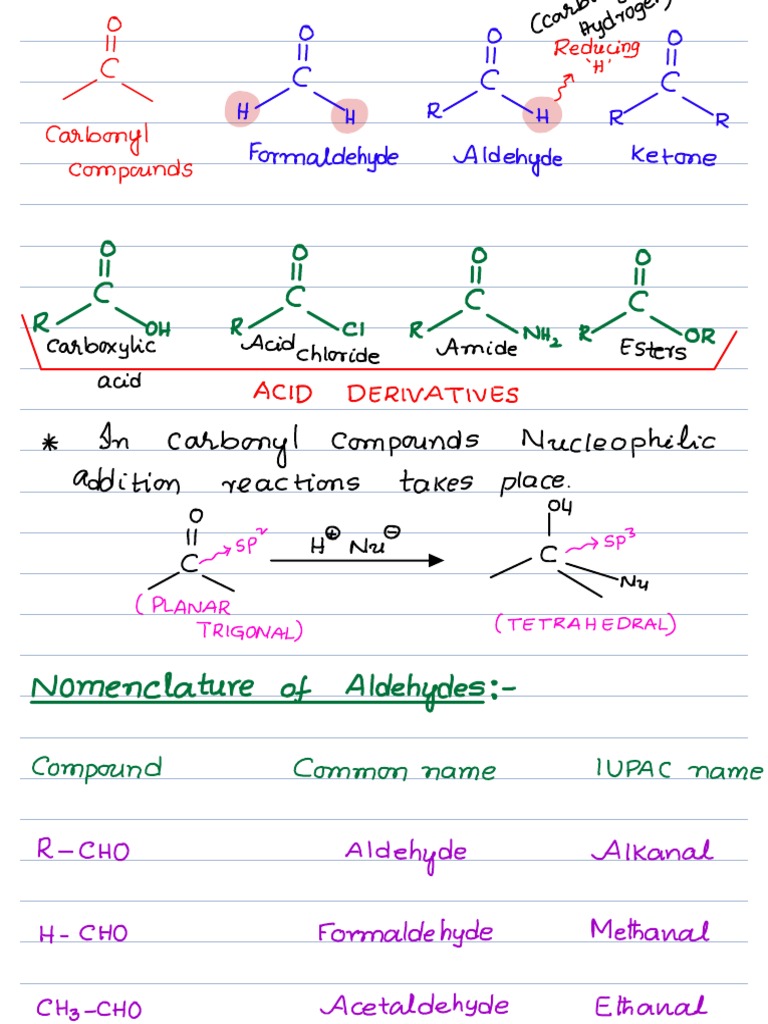 (carb
Hydrogen)
Reducing
'H'
O O O O
C C C C
H H R H R R
Carbonyl
Compounds
Formaldehyde Aldehyde Ketone
O O O O
C C C C
R OH R Cl R NH₂ R OR
Carboxylic
acid
Acid
chloride
Amide Esters
ACID DERIVATIVES
* In Carbonyl Compounds Nucleophilic
addition reactions takes place.
O OH
C SP² H⊕ Nu⊖ C SP³
Nu
(PLANAR
TRIGONAL)
(TETRAHEDRAL)
Nomenclature of Aldehydes:-
Compound Common name IUPAC name
R-CHO Aldehyde Alkanal
H-CHO Formaldehyde Methanal
CH₃-CHO Acetaldehyde Ethanal